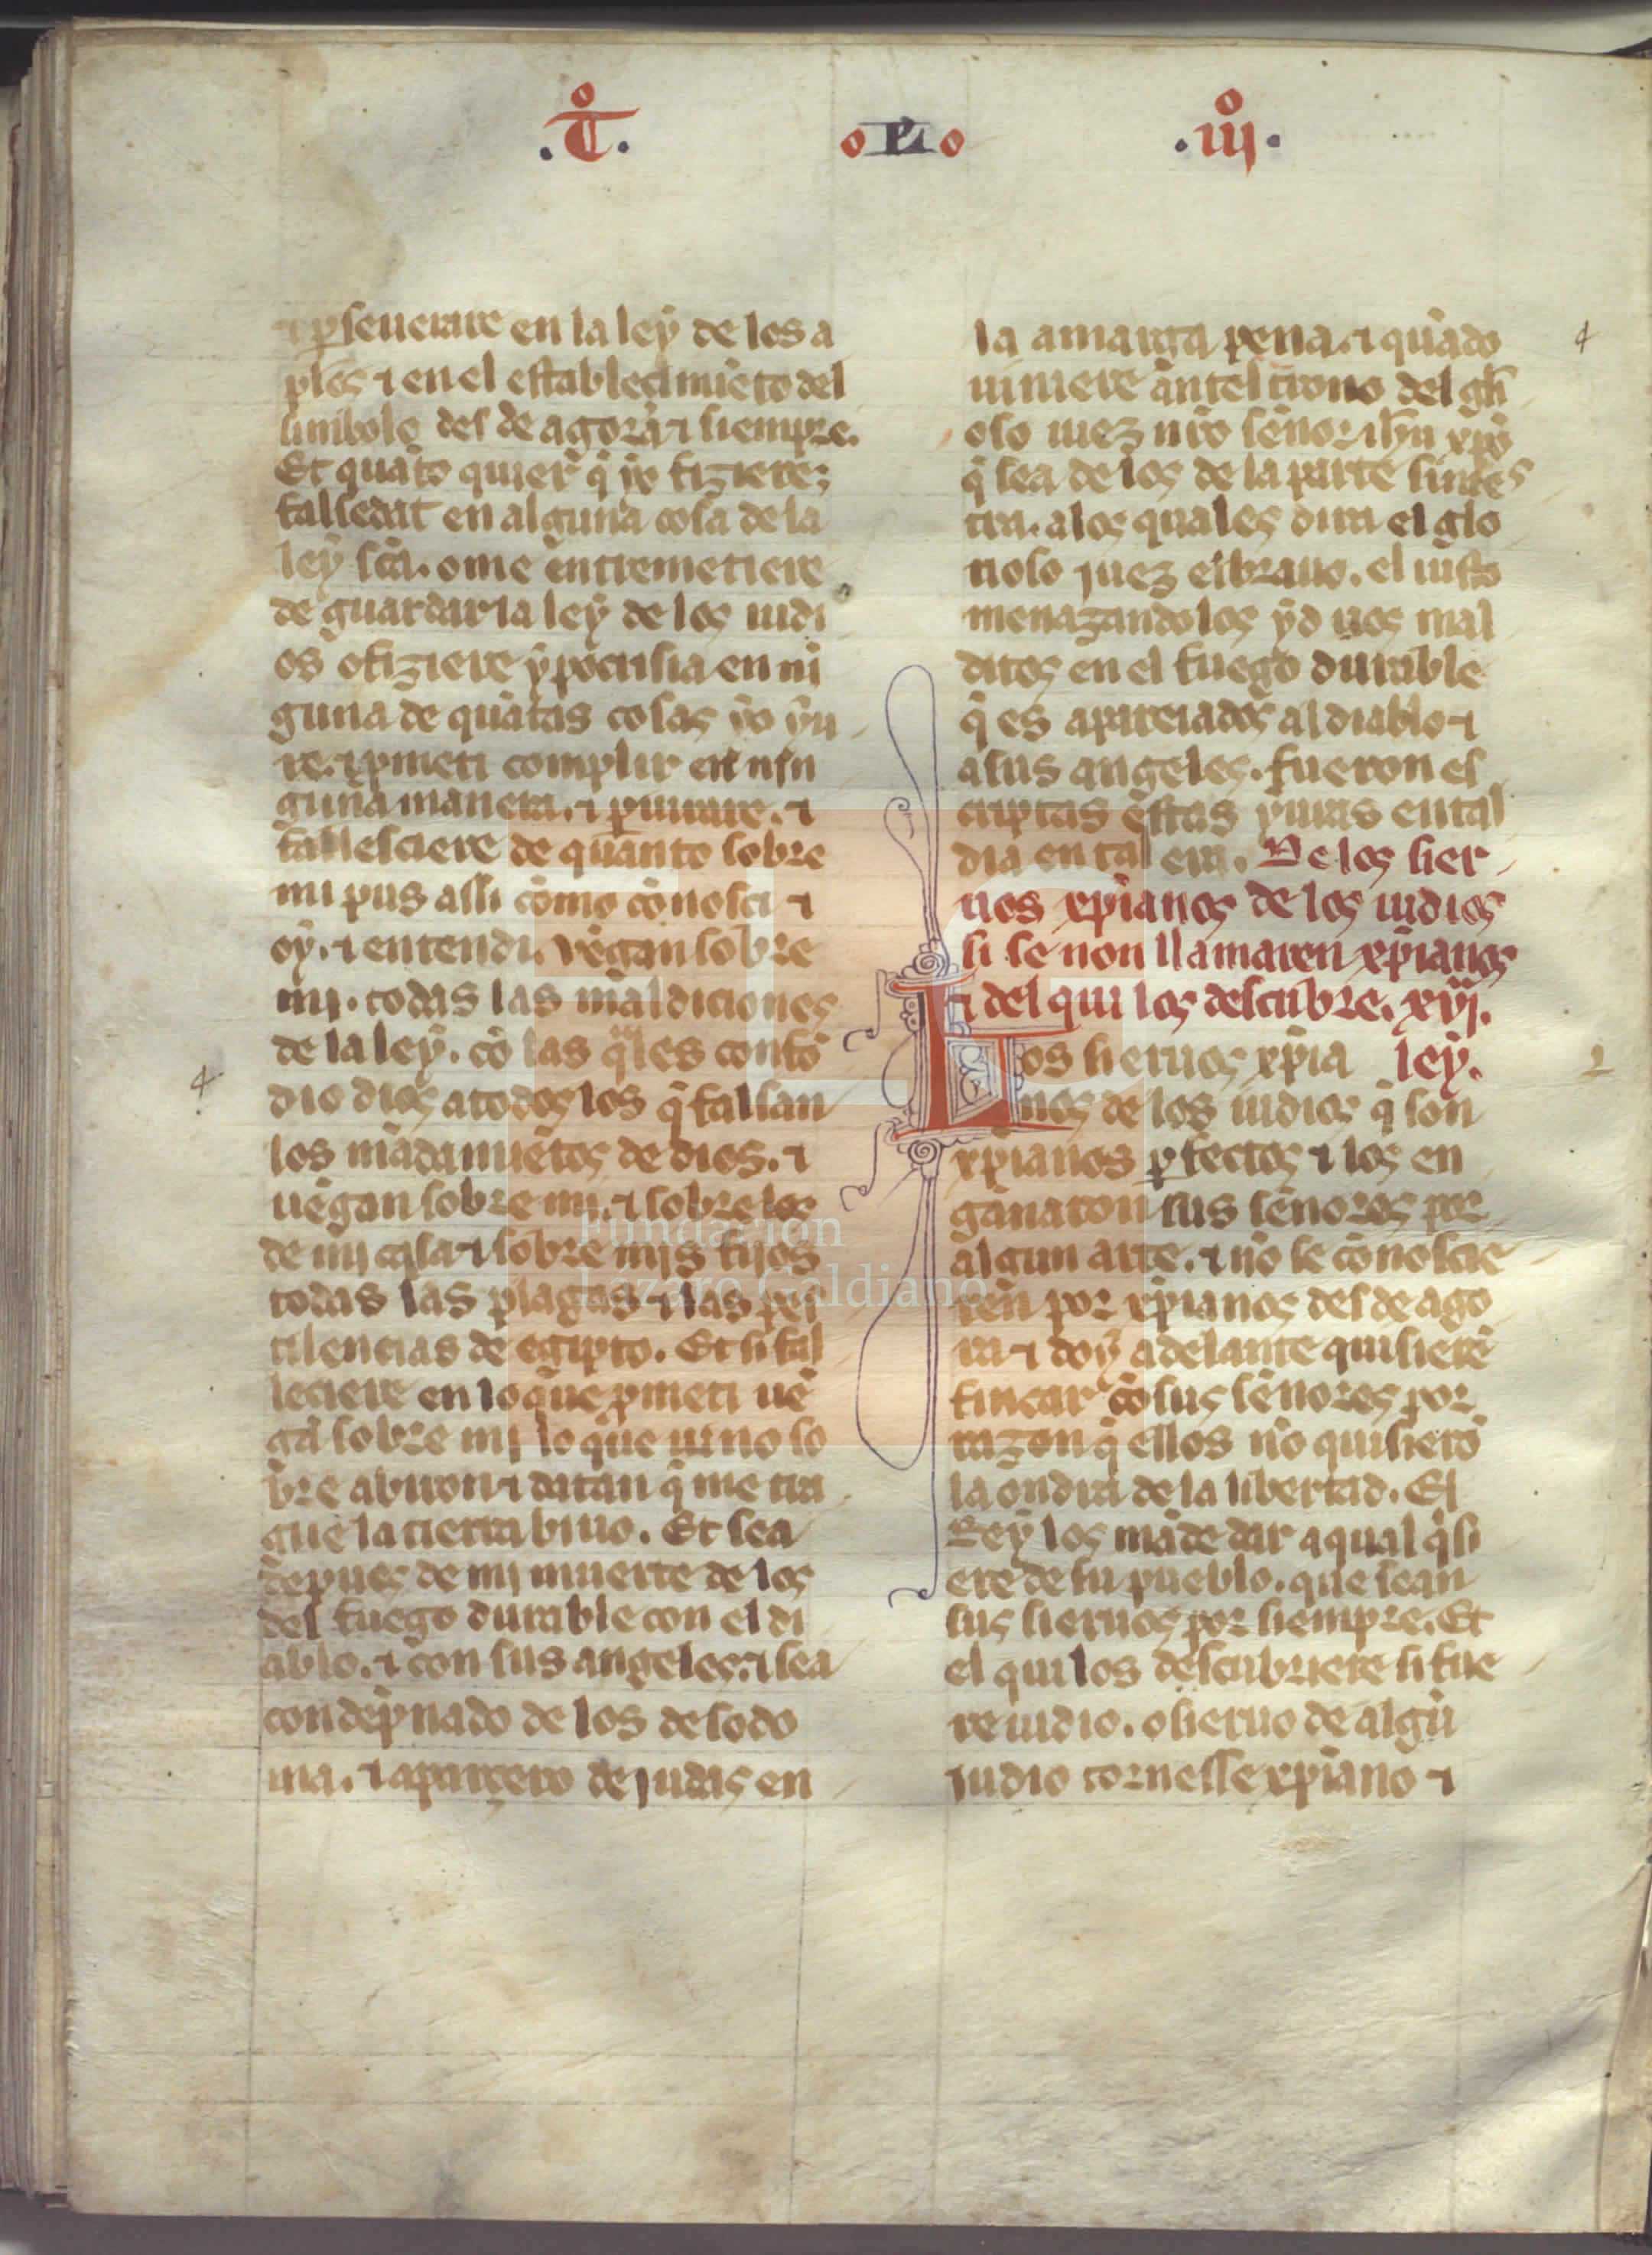 .T̊. oLo .iij̊.
⁊ p̱seuerare en la ley de los a
pl̃os ⁊ en el establecimiẽto del
simbolo des de agora ⁊ siempre.
Et quãto quier q̃ yo fiziere;
falsedat en alguna cosa de la
ley sc̃a. o me entremetiere
de guardar la ley de los iudi
os o fiziere ypocrisia en ni
guna de quãtas cosas yo yu
re. ⁊ p̱meti complir en nin
guna manera. ⁊ p̱iurare. ⁊
fallesciere de quanto sobre
mi pus assi cõmo cõnosci ⁊
oy. ⁊ entendi. vẽgan sobre
mi. todas las maldiciones
de la ley. cõ las q̃les confõ
dio dios a todos los q̃ falsan
los mãdamiẽtos de dios. ⁊
uẽgan sobre mi. ⁊ sobre los
de mi casa ⁊ sobre mjs fijos
todas las plagas ⁊ las pes
tilencias de egipto. Et si fal
leciere en lo que p̱meti uẽ
ga sobre mj lo que uino so
bre abiron ⁊ datan q̃ me tra
gue la tierra biuo. Et sea
depues de mj muerte de los
del fuego durable con el di
ablo. ⁊ con sus angeles. ⁊ sea
condẽpnado de los de sodo
ma. ⁊ aparçero de judas en
la amarga pena. ⁊ quãdo
uiniere antel trono del gl̃i
oso iuez nr̃o sẽnor ih̃u xp̃o
q̃ sea de los de la parte sinies
tra. a los quales dira el glo
rioso juez e brauo. el iusto
menazandolos yd uos mal
ditos en el fuego durable
q̃ es apareiados al diablo ⁊
a sus angeles. fueron es
criptas estas yuras en tal
dia en tal era. De los sier
uos xp̃ianos de los iudios
si se non llamaren xp̃ianos
⁊ del qui los descubre. xvj.
Los sieruos xp̃ia ley.
nos de los iudios q̃ son
xp̃ianos p̱fectos ⁊ los en
ganaron sus sẽnores por
algun arte. ⁊ nõ se cõnoscie
ren por xp̃ianos des de ago
ra ⁊ doy adelante quisierẽ
fincar cõ sus sẽnores por
razon q̃ ellos nõ quisierõ
la ondra de la libertad. El
Rey los mãde dar a qual q̃si
ere de su pueblo. que sean
sus sieruos por siempre. Et
el qui los descubriere si fue
re iudio. o sieruo de algũ
judio tornesse xp̃iano ⁊
Fundación
Lázaro Galdiano